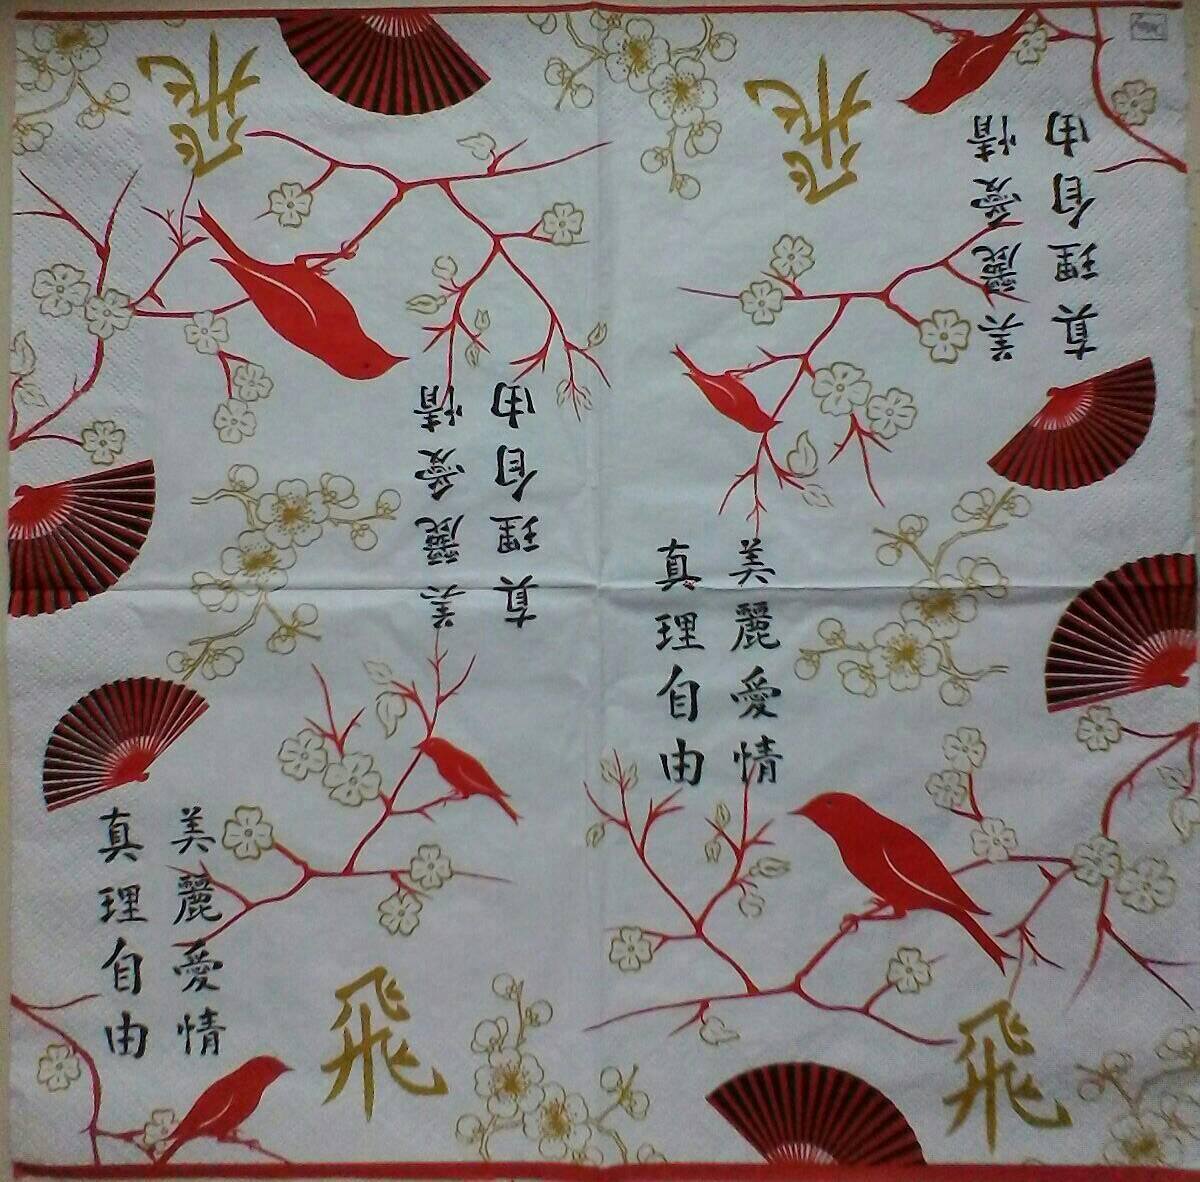 飛
飛
美麗愛情
真理自由
美麗愛情
真理自由
美麗愛情
真理自由
美麗愛情
真理自由
飛
飛